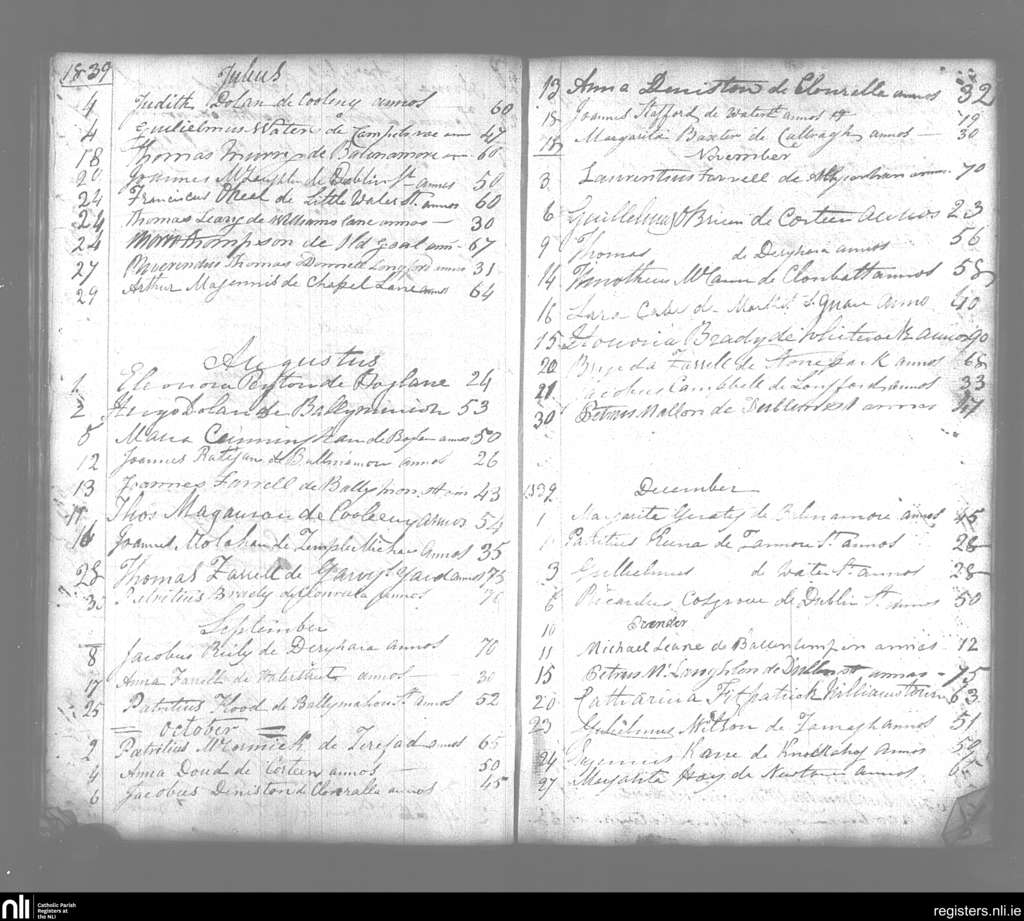 1839
Julius
4 Judith Dolan de Cooleny annos 60
4 Gulielmus Waters de ann 47
18 Thomas de Balinamore an 60
20 Joannes McLaughlin de Dublin St annos 50
24 Franciscus de Little Water St. annos 60
24 Thomas Leary de Williams Lane annos 30
24 Thompson de Old goal ann 67
27 Reverendus Thomas Longford annos 31
29 Arthur Magennis de Chapel Lane annos 64
Augustus
1 Eleonora Peyton de 24
2 Hugo Dolan de Ballyminion 53
5 Maria Cunningham de annos 50
12 Joannes Ratigan de Ballinamore annos 26
13 Joannes Farrell de 43
Thos Magauran de Cooleeny annos 54
16 Joannes Molahan de Temple Michael Annos 35
28 Thomas Farrell de Garvy's Yard annos 73
Patritius Brady de Clonrala annos
September
8 Jacobus Reily de Deryhara annos 70
17 Anna Farrell de Waterstreet annos 30
25 Patritius Flood de Ballymahon St annos 52
October
2 Patritius McCormick de annos 65
4 Anna Doud de Corteen annos 50
6 Jacobus Deniston de Clonralla annos 45
13 Anna Deniston de Clonrella annos 32
18 Joannes Stafford de Water St annos 19
18 Margarita Baxter de annos 30
November
3 Laurentius Farrell de ann. 70
6 Guillelmus O'Brien de Corteen annos 23
9 Thomas de Deryhara annos 56
14 Timotheus McCann de Clonbalt annos 58
16 Cabe de Market Square Anno 40
15 Honoria Brady de Whiterock annos 90
20 Brigida Farrell de Stonepark annos 68
21 Campbell de Longford annos 33
30 Petrus Mallon de Dublin St annos 47
1839 December
1 Margarita Geraty de Balinamore annos 45
Patritius Keena de St. annos 28
3 Gullielmus de Water St. annos 28
6 Ricardus Cosgrove de Dublin St. annos 50
10
11 Michael Leane de annos 12
15 Petrus McLaughlon de Dublin St annos 75
20 Catharina Fitzpatrick Williamstown 63
23 Gulielmus Wilson de annos 51
24 Eugenius Kane de annos
27 Margarita Hay de Newtown annos
nli
Catholic Parish
Registers at
the NLI
registers.nli.ie